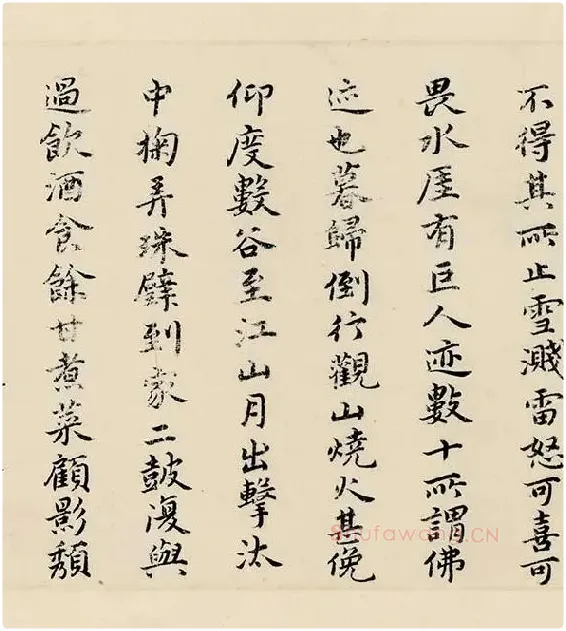 不得其所止雪濺雷怒可喜可
畏水厓有巨人迹數十所謂佛
迹也暮歸倒行觀山燒火甚俛
仰度數谷至江山月出擊汰
中掬弄珠璧到家二鼓復與
過飲酒食餘甘煮菜顧影頹
Shufawang.CN